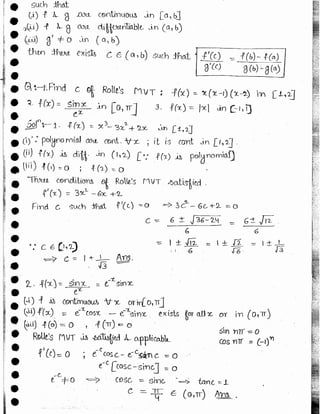 such that
(i) f & g are continuous in [a,b]
(ii) f & g are differentiable in (a,b)
(iii) g' ≠ 0 in (a,b)
then there exists c ∈ (a,b) such that f'(c)/g'(c) = f(b)-f(a)/g(b)-g(a)
Q1→1. Find c of Rolle's MVT : f(x) = x(x-1)(x-2) in [1,2]
2. f(x) = sinx/e^x in [0,π] 3. f(x) = |x| in [-1,1]
sol^n→1. f(x) = x³-3x²+2x in [1,2]
(i) ∵ polynomial are cont. ∀ x ; it is cont in [1,2].
(ii) f(x) is diff. in (1,2) [∵ f(x) is polynomial]
(iii) f(1) = 0 ; f(2) = 0
Three conditions of Rolle's MVT satisfied.
f'(x) = 3x²-6x+2
Find c such that f'(c) = 0 ⇒ 3c²-6c+2 = 0
c = 6 ± √36-24 / 6 = 6 ± √12 / 6
∵ c ∈ (1,2) = 1 ± √12/6 = 1 ± √12/√36 = 1 ± 1/√3
⇒ c = 1 + 1/√3 Ans.
2. f(x) = sinx/e^x = e^-x sinx
(i) f is continuous ∀ x or in [0,π]
(ii) f'(x) = e^-x cosx - e^-x sinx exists for all x or in (0,π)
(iii) f(0) = 0 , f(π) = 0
sin nπ = 0
Rolle's MVT is satisfied & applicable.
cos nπ = (-1)^n
f'(c) = 0 ; e^-c cosc - e^-c sinc = 0
e^-c [cosc - sinc] = 0
e^-c ≠ 0 ⇒ cosc = sinc ⇒ tanc = 1
c = π/4 ∈ (0,π) Ans.